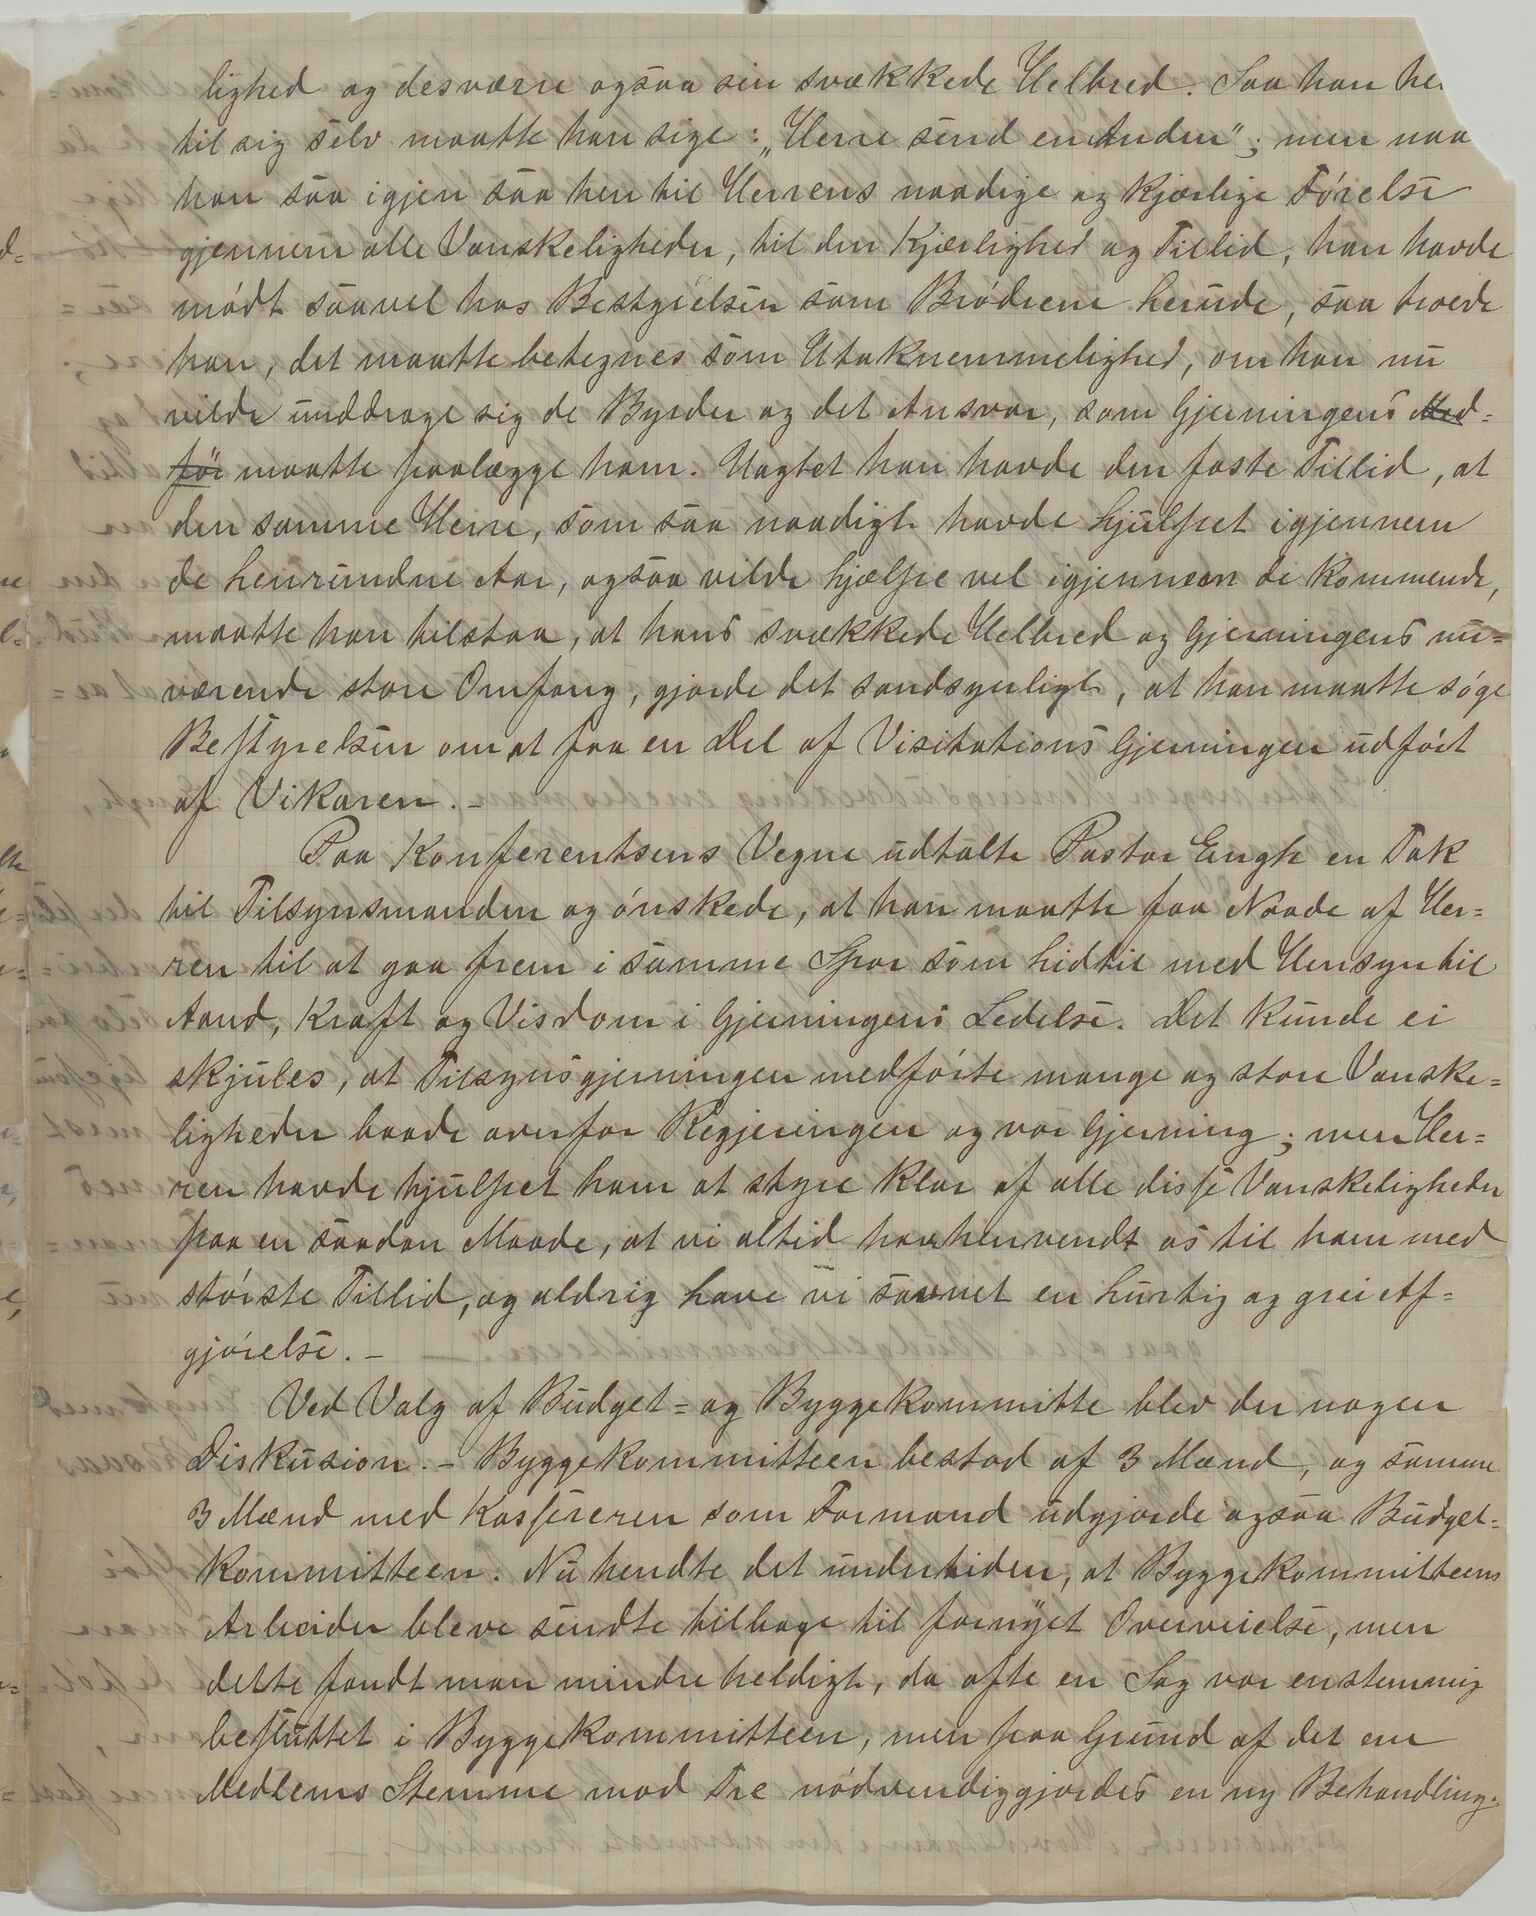 lighed og desværre ogsaa sin svækkede Helbred. Saa han hen
til sig selv maatte han sige: „Herre send en Anden"; men naar
han saa igjen saa hen til Herrens naadige og kjærlige Førelse
gjennem alle Vanskeligheder, til den Kjærlighed og Tillid, han havde
mødt saavel hos Bestyrelsen som Brødrene herude, saa troede
han, det maatte betegnes som Utaknemmelighed, om han nu
vilde unddrage sig de Byrder og det Ansvar, som Gjerningens Med=
før maatte paalægge ham. Uagtet han havde den faste Tillid, at
den samme Herre, som saa naadigt havde hjulpet igjennem
de henrundne Aar, ogsaa vilde hjælpe vel igjennem de kommende,
maatte han tilstaa, at hans svækkede Helbred og Gjerningens nu=
værende store Omfang, gjorde det sandsynligt, at han maatte søge
Bestyrelsen om at faa en Del af Visitations Gjerningen udført
af Vikaren. –
Paa Konferentsens Vegne udtalte Pastor Engh en Tak
til Tilsynsmanden og ønskede, at han maatte faa Naade af Her=
ren til at gaa frem i samme Spor som hidtil med Hensyn til
Aand, Kraft og Visdom i Gjerningens Ledelse. Det kunde ei
skjules, at Tilsynsgjerningen medførte mange og store Vanske=
ligheder baade overfor Regjeringen og vor Gjerning; men Her=
ren havde hjulpet ham at styre klar af alle disse Vanskeligheder
paa en saadan Maade, at vi altid har henvendt os til ham med
største Tillid, og aldrig have vi savnet en hurtig og grei Af=
gjørelse. –
Ved Valg af Budget= og Byggekommitte blev der nogen
Diskusion. – Byggekommitteen bestod af 3 Mænd, og samme
3 Mænd med Kassereren som Formand udgjorde ogsaa Budget=
kommitteen. Nu hendte det undertiden, at Byggekommitteens
Arbeider bleve sendte tilbage til fornyet Overveielse, men
dette fandt man mindre heldigt, da ofte en Sag var enstemmig
besluttet i Byggekommitteen, men paa Grund af det ene
Medlems Stemme mod Tre nødvendiggjordes en ny Behandling.